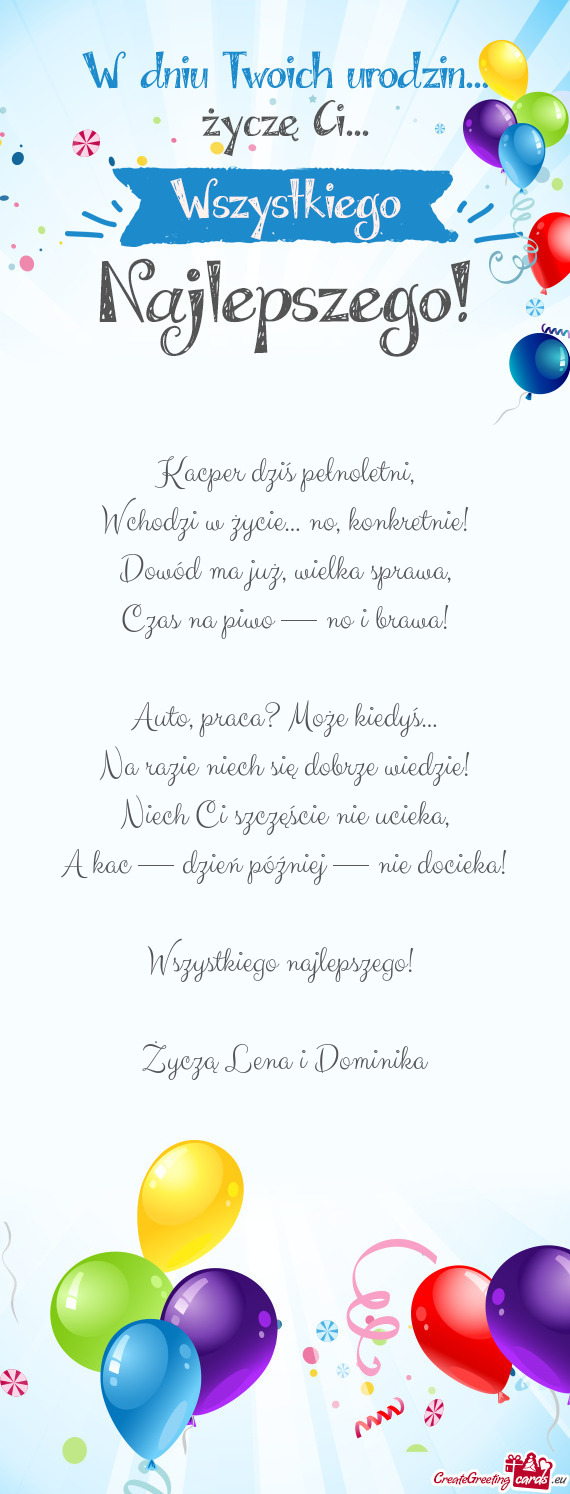 W dniu Twoich urodzin...
życzę Ci...
Wszystkiego
Najlepszego!
Kacper dziś pełnoletni,
Wchodzi w życie... no, konkretnie!
Dowód ma już, wielka sprawa,
Czas na piwo — no i brawa!
Auto, praca? Może kiedyś...
Na razie niech się dobrze wiedzie!
Niech Ci szczęście nie ucieka,
A kac — dzień później — nie docieka!
Wszystkiego najlepszego!
Życzą Lena i Dominika
CreateGreeting cards .eu